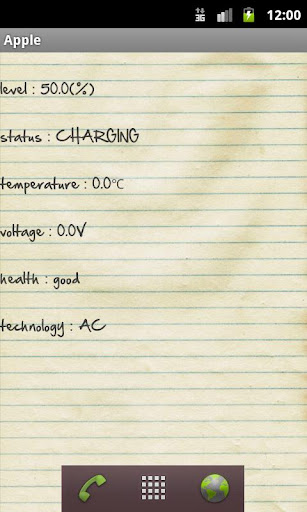 3G 12:00
Apple
level : 50.0(%)
status : CHARGING
temperature : 0.0℃
voltage : 0.0V
health : good
technology : AC